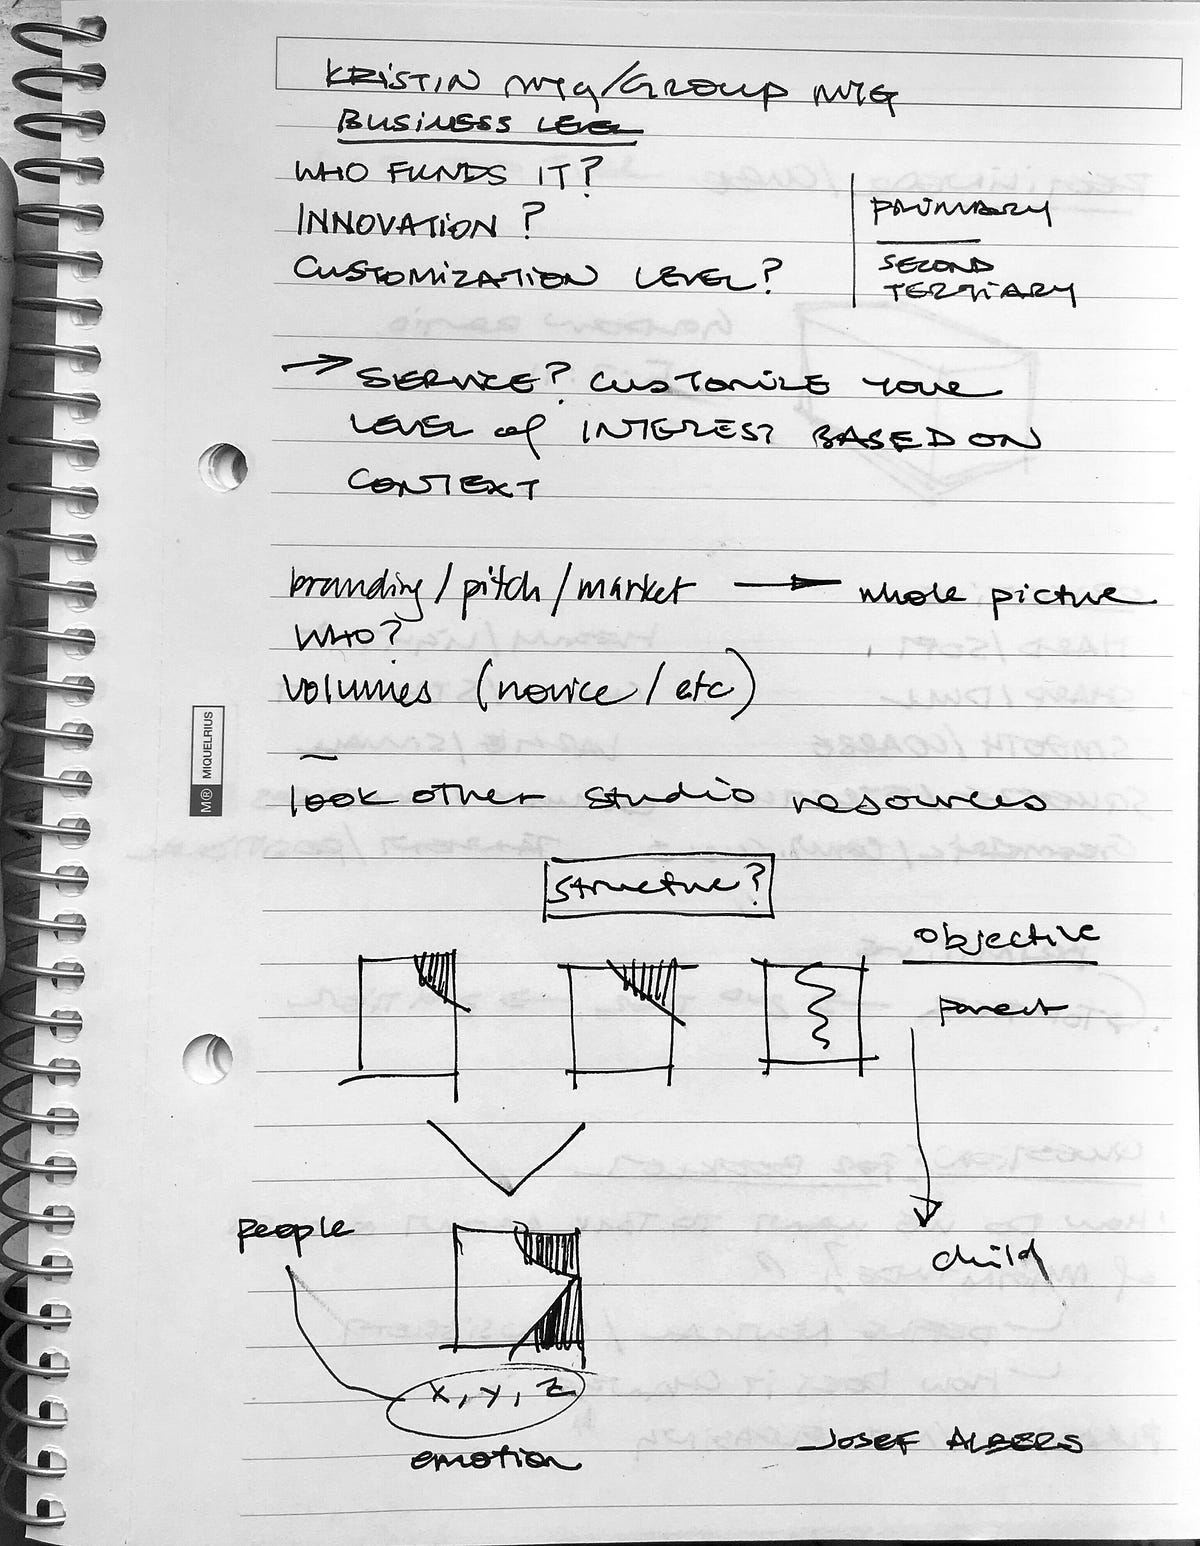 KRISTIN MTG/GROUP MTG
BUSINESS LEVEL
WHO FUNDS IT?
INNOVATION?
CUSTOMIZATION LEVEL?
PRIMARY
SECOND
TERTIARY
→ SERVICE? CUSTOMIZE YOUR
LEVEL of INTEREST BASED ON
CONTEXT
branding/pitch/market → whole picture
WHO?
volumes (novice/etc)
look other studio resources
MIQUELRIUS
structure?
objective
parent
people
child
x, y, z
emotion
JOSEF ALBERS